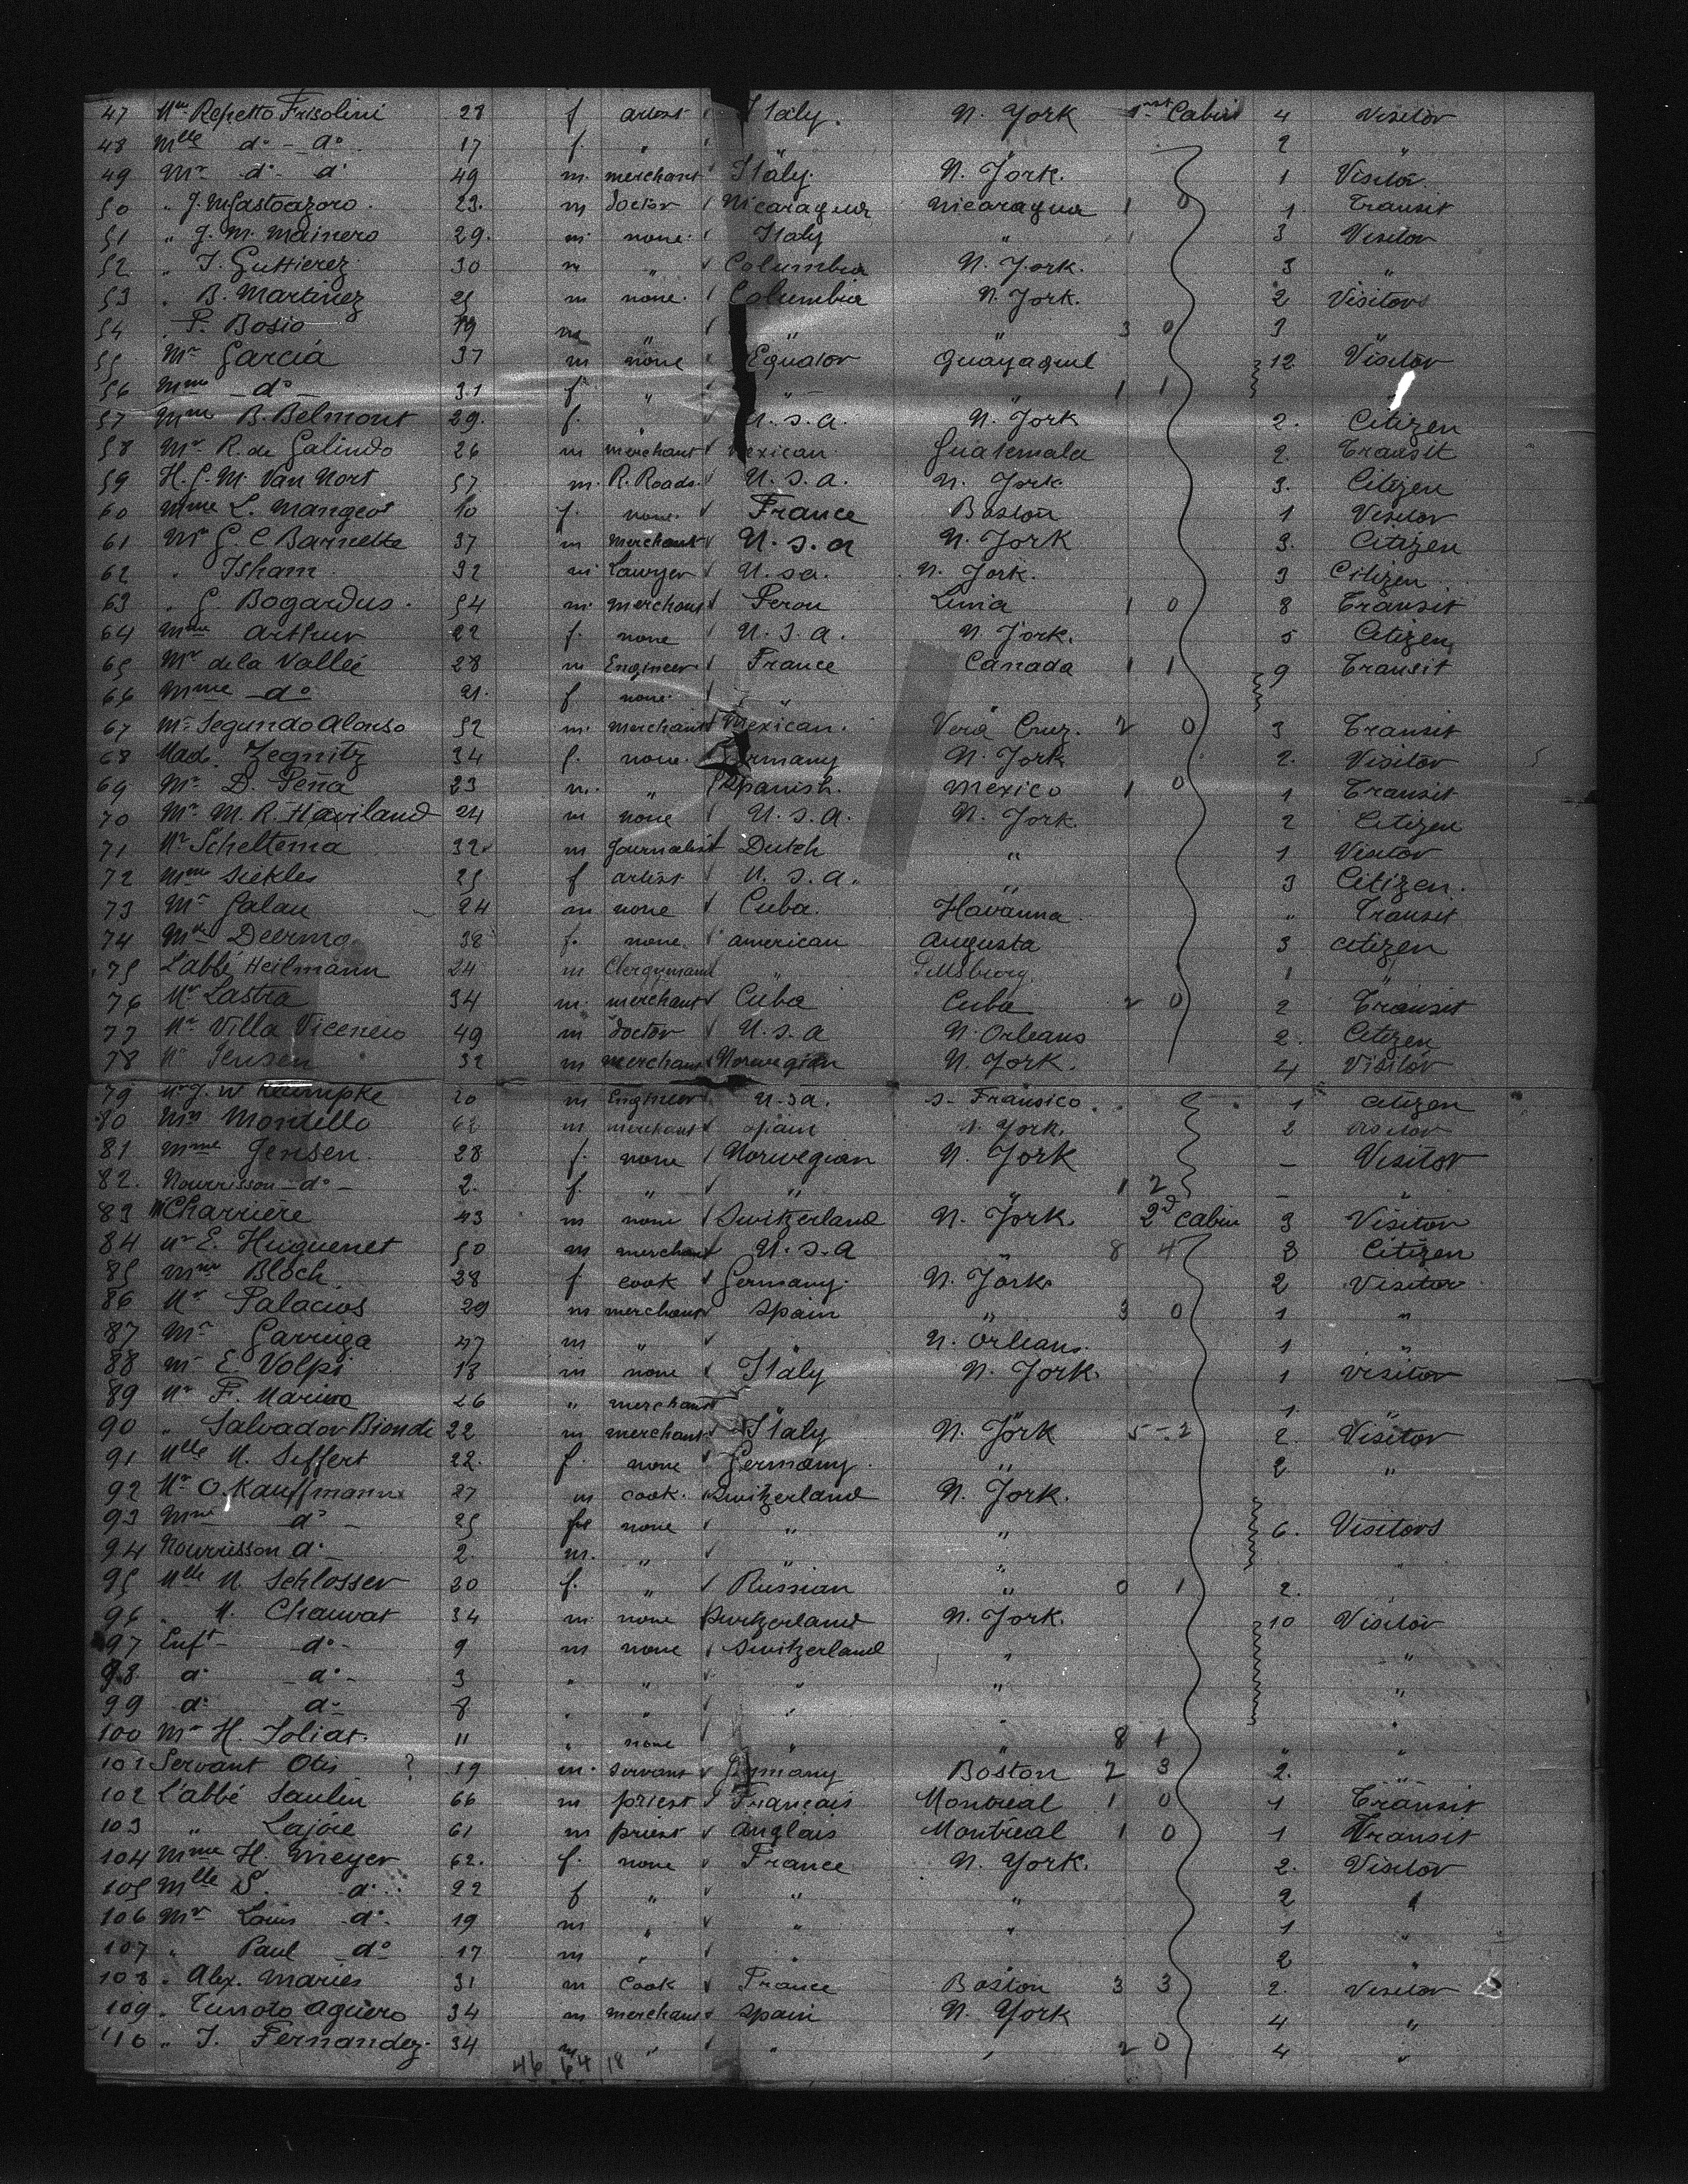 47 Mme Repetto Frisolini 28 f artist Italy. N. York 1rst Cabin 4 Visitor
48 Mlle do - do 17 f. " " " 2 "
49 Mr - do - do 49 m. merchant Italy. N. York. 1 Visitor
50 " J. 29. m doctor Nicaragua Nicaragua 1 0 1. Transit
51 " J. M. Mainero 29. m none. Italy " 3 Visitor
52 " J. Guttierez 30 m " Columbia N. York. 3 "
53 " B. Martinez 25 m none. Columbia N. York. 2 Visitors
54 " P. Bosio 19 m " " " 3 0 3 "
55 Mr Garcia 37 m none Equator guayaquil 12 Visitor
56 Mme - do - 31 f " " " 1 1
57 Mme B. Belmont 29. f. " U.s.a. N. York 2. Citizen
58 Mr R. de Galindo 26 m merchant Mexican Guatemala 2. Transit
59 H. G. M. Van Nort 57 m. R. Roads. U.S.a. N. York 3. Citizen
60 Mme L. Mangeot 10 f. none. France Boston 1 Visitor
61 Mr G. C Barnette 37 m Merchant U.s.a N. York 3. Citizen
62 " Isham 32 m Lawyer U.sa. N. York. 3 Citizen
63 " G. Bogardus. 54 m. merchant Perou Lima 1 0 8 Transit
64 Mme arthur 22 f. none U.S.a. N. York. 5 Citizen
65 Mr de la Valleé 28 m Engineer. France Canada 1 1 9 Transit
66 Mme - do 21. f none. " "
67 Mr Segundo Alonso 52 m. merchant Mexican. Vera Cruz. 2 0 3 Transit
68 Mad. Zegnitz 34 f. none. Germany N. York 2. Visitor
69 Mr D. Peña 23 m. " Spanish. Mexico 1 0 1 Transit
70 Mr M. R. Haviland 24 m none U.s.a. N. York. 2 Citizen
71 Mr Scheltema 32. m Journalist Dutch " 1 Visitor
72 Mme Siekles 25 f artist U.S.a. " 3 Citizen.
73 Mr Galau 24 m none Cuba. Havanna " Transit
74 Mlle Deering 38 f. none. american Augusta 3 citizen
75 L'abbé Heilmann 24 m Clergymand " 1 "
76 Mr Lastra 34 m. merchant Cuba Cuba 2 0 2 Transit
77 Mr Villa Vicencio 49 m doctor U.s.a N. Orleans 2. Citizen
78 Mr Jensen 32 m merchant Norwegian N. York. 4 Visitor
79 Mr J. W Klumpke 20 m Engineer U.sa. S- Fransico. 1 citizen
80 Mr Montello 62 m merchant spain N. York. 2 visitor
81 Mme Jensen. 28 f. none Norwegian N. York - Visitor
82. Nourrisson - do - 2. f. " " " 1 2 - "
83 M Charriere 43 m none Switzerland N. York. 2d Cabin 3 Visitor
84 Mr E. Huguenet 50 m merchant U.s.a " 8 4 3 Citizen
85 Mme Bloch 28 f cook Germany. N. York. 2 Visitor
86 Mr Palacios 29 m merchant Spain " 3 0 1 "
87 Mr Garriga 47 m " " N. Orleans. 1 "
88 Mr E. Volpi 18 m none Italy N. York. 1 visitor
89 Mr F. Marino 26 " merchant 1. "
90 " Salvador Biondi 22 m merchant Italy N. York 5 - 2 2. Visitor
91 Mlle M. Siffert 22. f. none Germany. " 2. "
92 Mr O. Kauffmann 27 m cook. Switzerland N. York.
93 Mme do - 25 f none " " 6. Visitors
94 Nourrisson do - 2. m. " " " "
95 Mlle M. Schlosser 20 f. " Russian " 0 1 2. "
96 " M. Chauvat 34 m. none Switzerland N. York. 10 Visitor
97 Enft - do - 9 m none Switzerland " "
98. do do - 3 " " " " "
99 do do - 8 " " " " "
100 Mr H. Joliat. 11 " none " " 8 1 " "
101 Servant Otis ? 19 m. servant Germany Boston 2 3 2. "
102 L'abbé Saulin 66 m priest Francais Montreal 1 0 1 Transit
103 " Lajoie 61 m priest Anglais Montreal 1 0 1 Transit
104 Mme H. Meyer 62. f. none France N. York. 2. Visitor
105 Mlle S. do 22 f " " " 2 "
106 Mr Louis do. 19 m " " " 1 "
107 " Paul do 17 m " " " 2 "
108 " Alex. Maries 31 m Cook France Boston 3 3 2. Visitor
109 " aguero 34 m merchant Spain N. York 4 "
110 " J. Fernandez. 34 m " " " 2 0 4 "
46 64 18